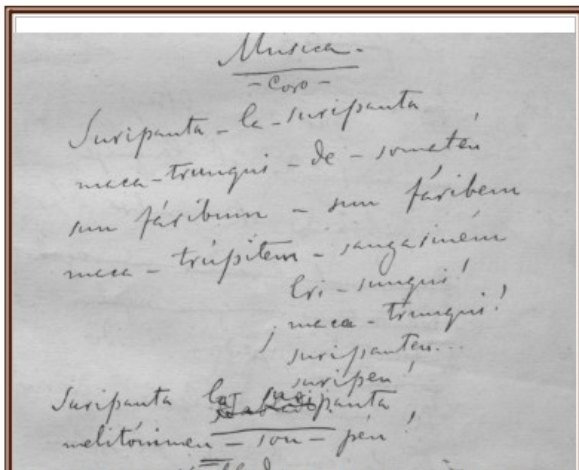 Musica.
- Coro -
Suripanta - la - suripanta
maca - trunqui - de - somatén
sun fáribun - sun fáriben
maca - trúpitem - sangasinén
Eri - sunqui!
¡maca - trunqui!
suripantén...
suripén!
Suripanta la suripanta
melitónimen - son - pén!